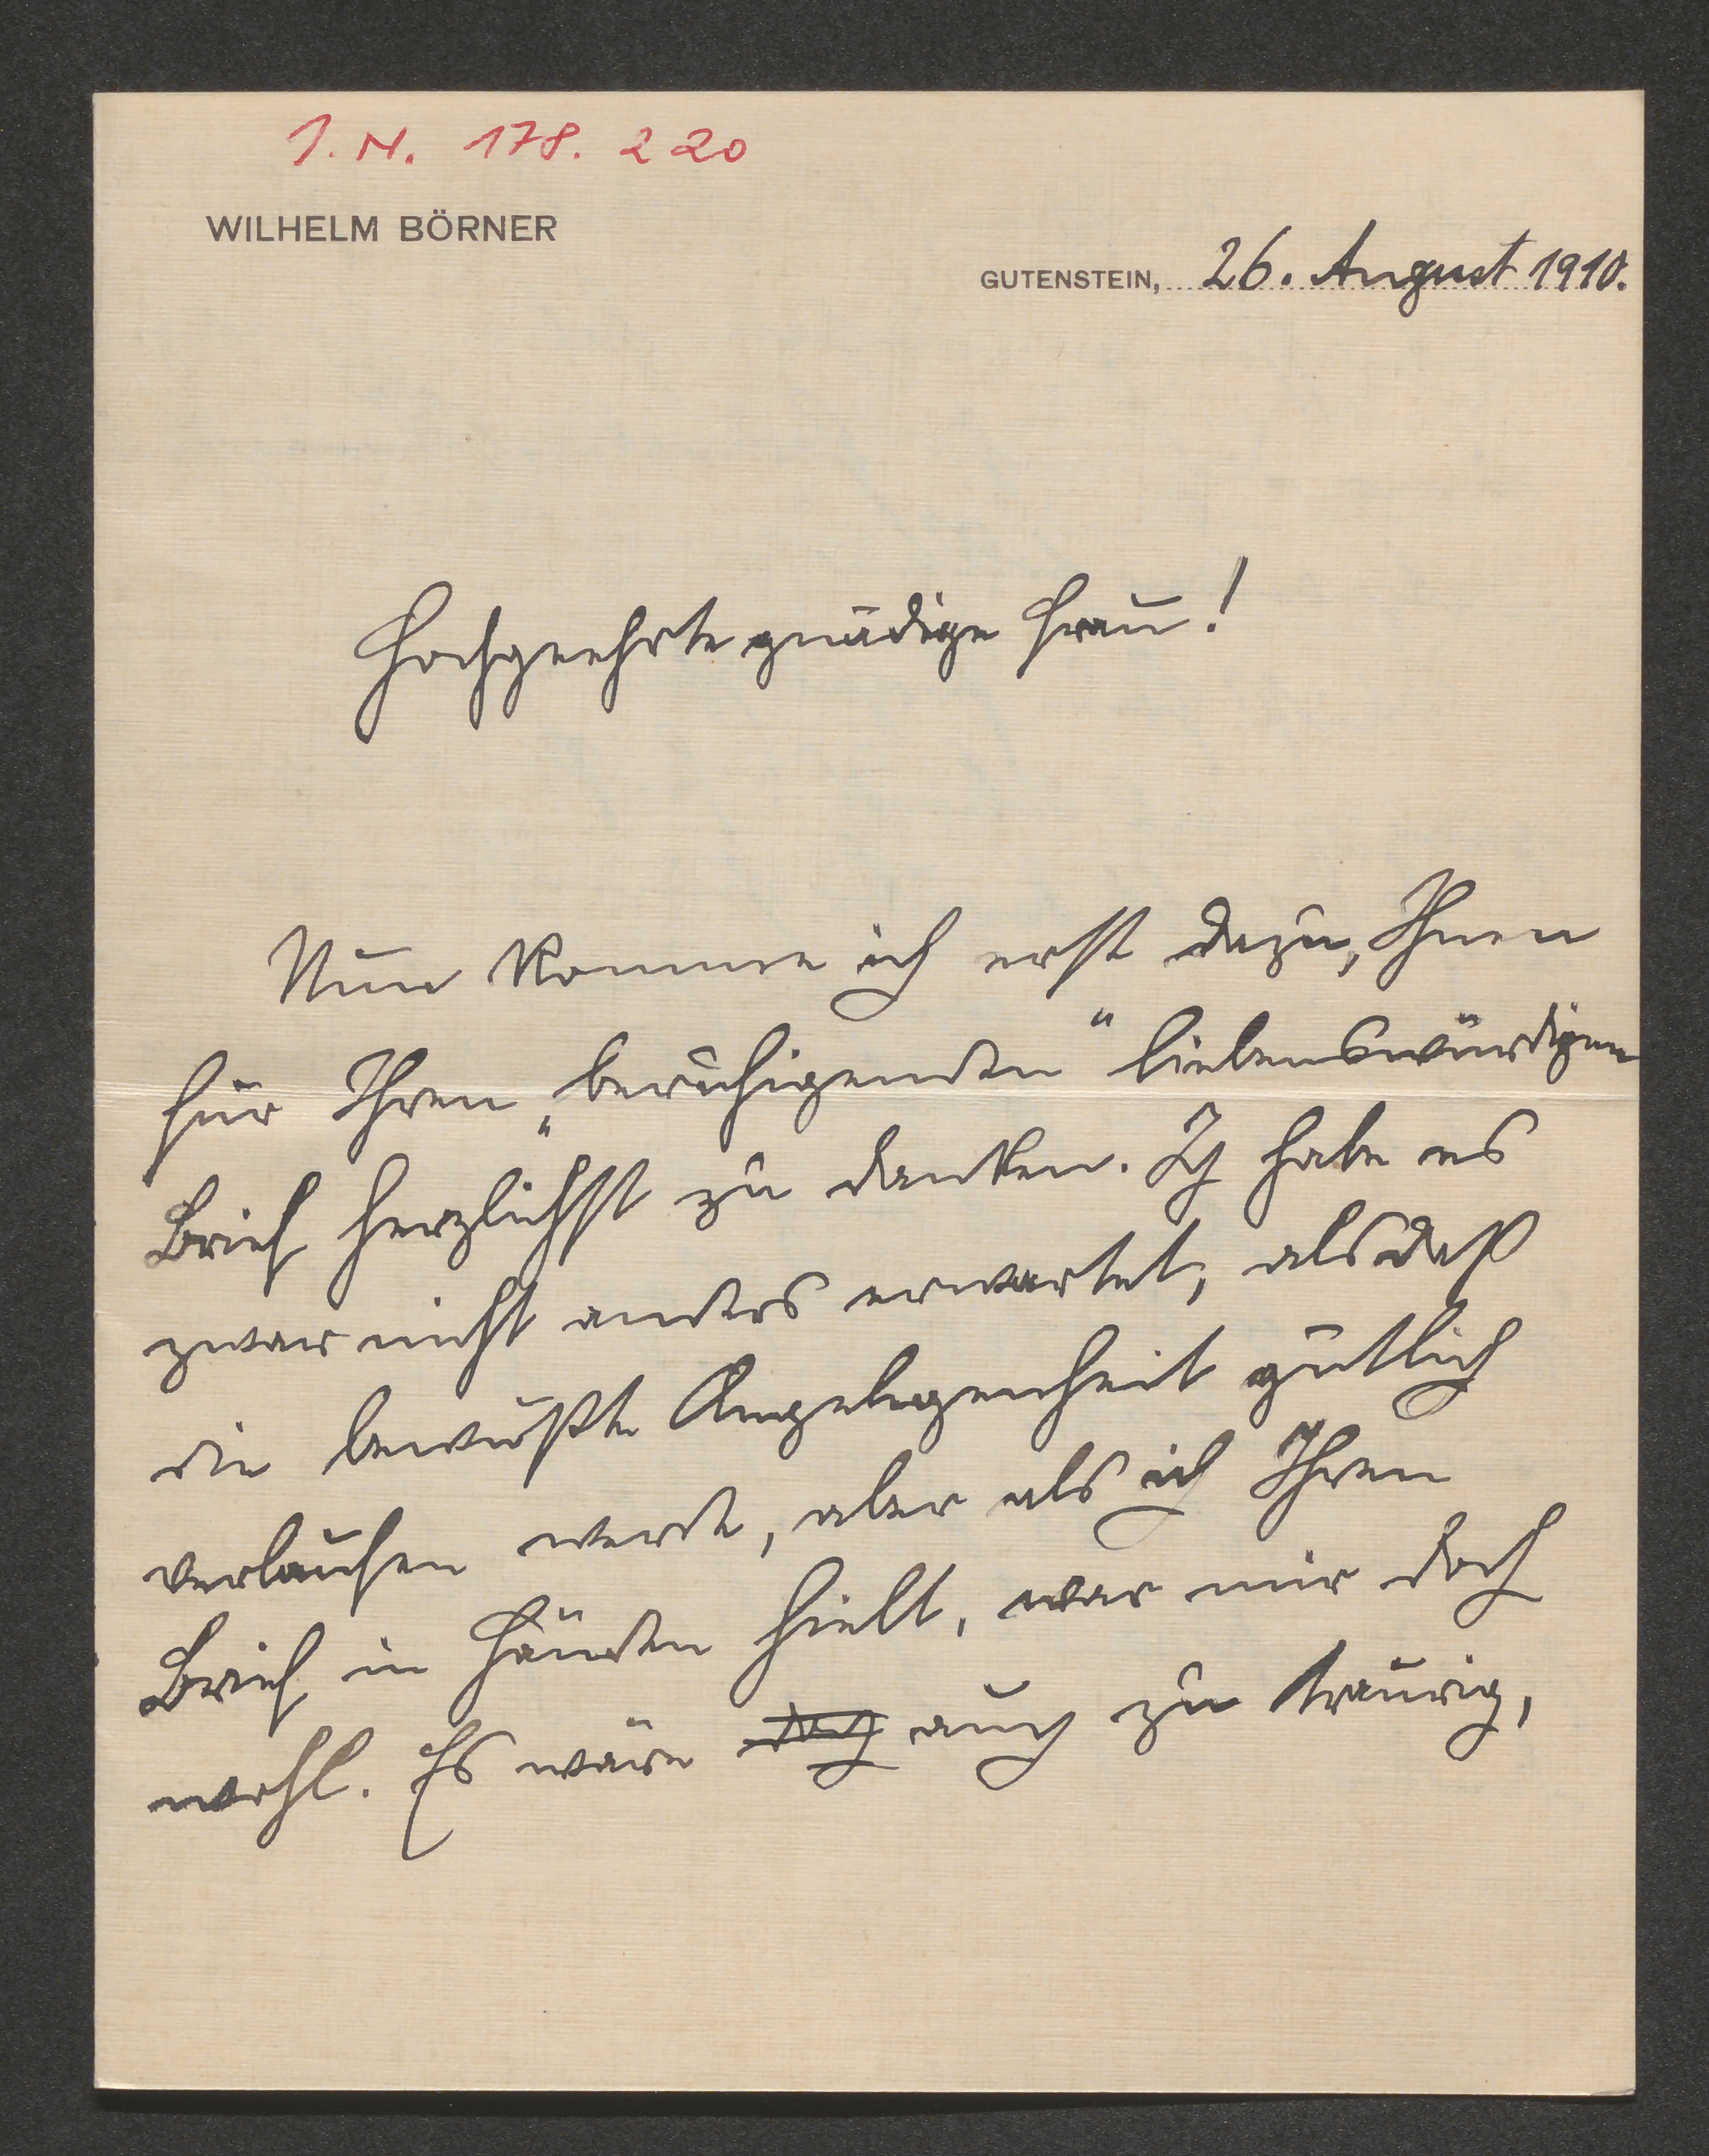 I.N. 178.220
WILHELM BÖRNER
GUTENSTEIN, 26. August 1910.
Hochgeehrte gnädige Frau!
Nun komme ich erst dazu, Ihnen
für Ihren „beruhigenden“ liebenswürdigen
Brief herzlichst zu danken. Ich habe es
zwar nicht anders erwartet, als daß
die bewußte Angelegenheit gütlich
verlaufen werde, aber als ich Ihren
Brief in Händen hielt, war mir doch
wohl. Es wäre doch auch zu traurig,